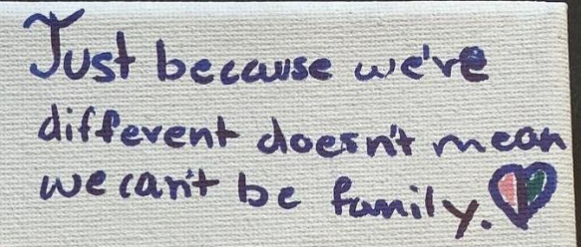 Just because we're
different doesn't mean
we can't be family.